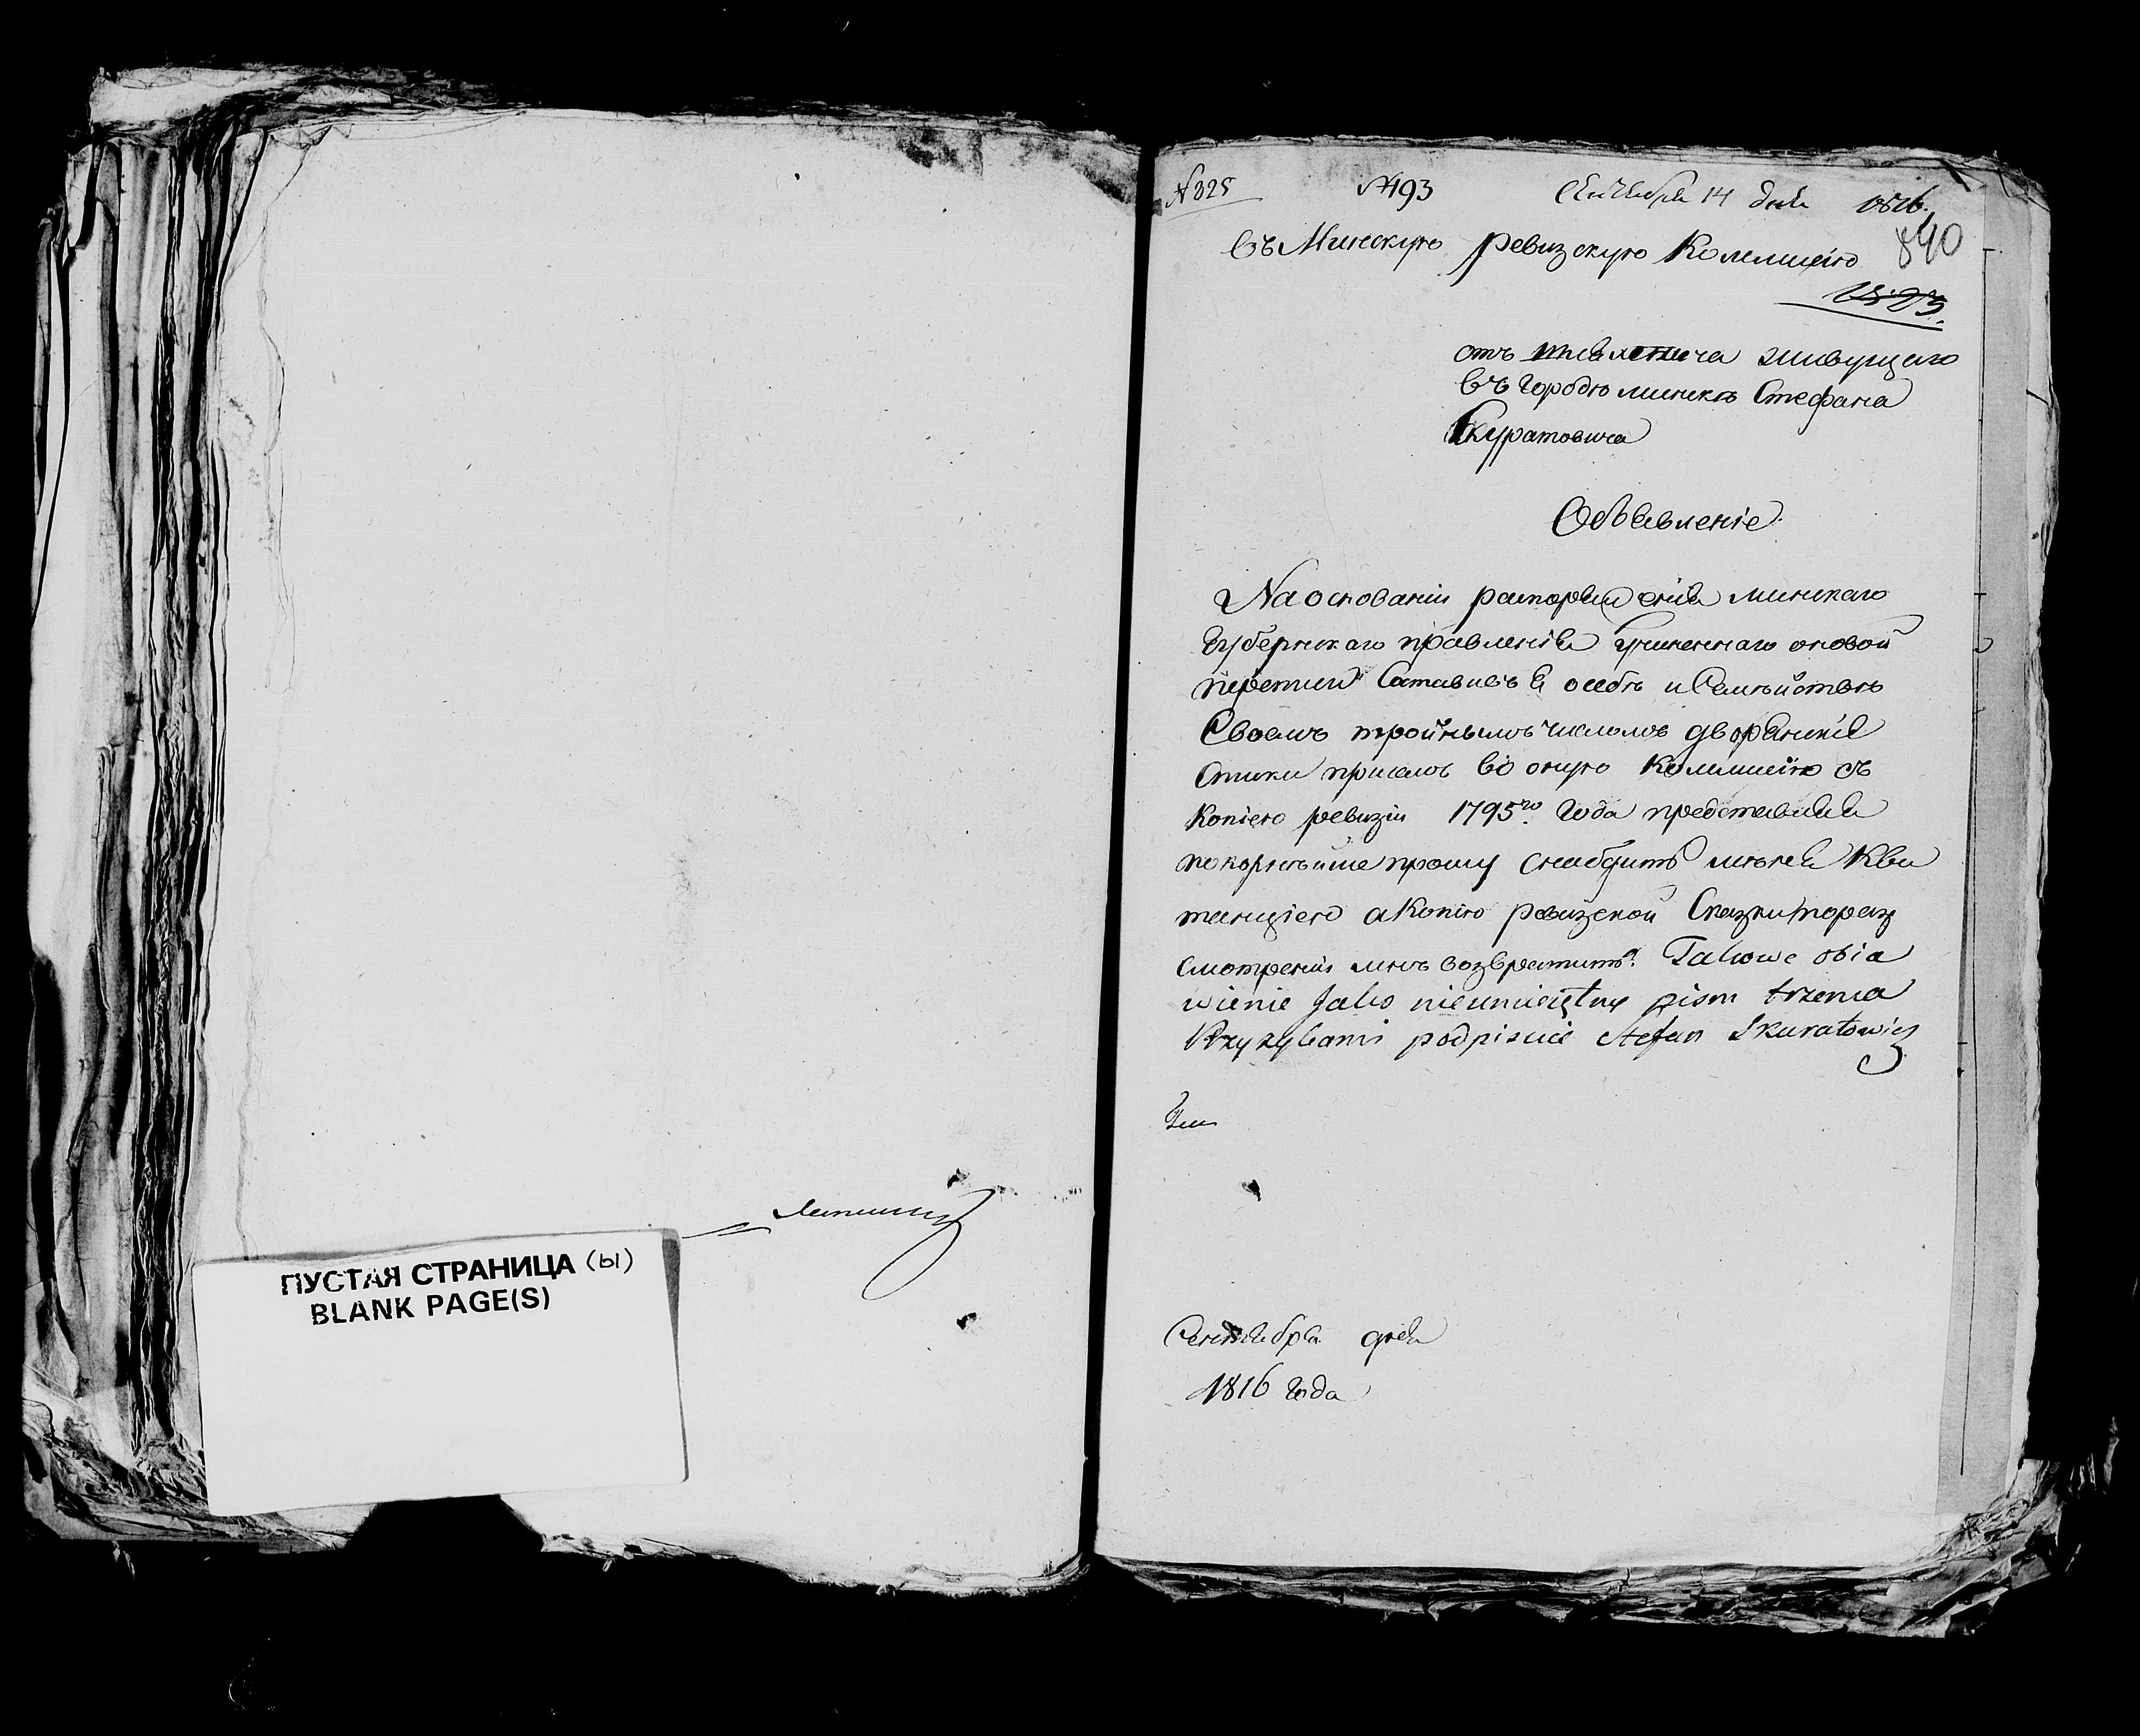 ПУСТАЯ СТРАНИЦА (ы)
BLANK PAGE(S)
№ 325 № 193 Сентября 14 дня 1816.
Въ Минскую ревизскую Коммисію
840
1823.
отъ шляхтича живущаго
въ Городѣ минскѣ Стефана
Скуратовича
Объявленіе.
На основаніи распоряженія минскаго
Губернскаго правленія учиненнаго оновой
переписи Составивъ я о себѣ и Семѣйствѣ
Своемъ тройнымъ числомъ дворянскіе
Списки при семъ въ оную Коммисію съ
Копіею ревизіи 1795го. Года представляя
покорнѣйше прошу снабдить мѣня Кви
танціею а Копію ревизской Сказки пораз
смотреніи мнѣ возвратить. Takowe obia
wienie jako nieumieiętny pism trzema
Krzyżykami podpisuie Stefan Skuratowicz
Сентября дня
1816 Года